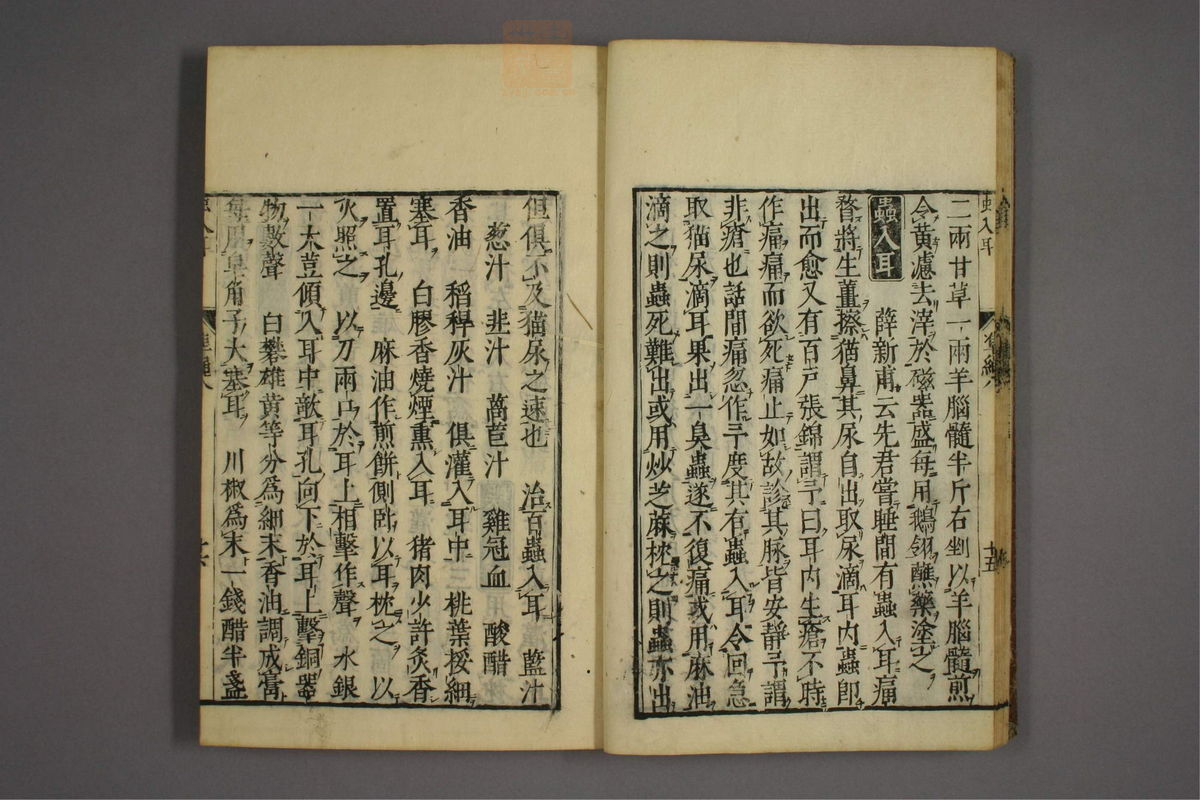 二兩甘草一兩羊腦髓半斤右剉以羊腦髓煎
令黄濾去滓於磁器盛每用鵝翎蘸藥塗之
蟲入耳　薛新甫云先君嘗睡間有蟲入耳痛
瞀將生薑擦猫鼻其尿自出取尿滴耳内蟲卽
出而愈又有百戸張錦謂予曰耳内生瘡不時
作痛痛而欲死痛止如故診其脉皆安靜予謂
非瘡也話間痛忽作予度其有蟲入耳令回急
取猫尿滴耳果出一臭蟲遂不復痛或用麻油
滴之則蟲死難出或用炒芝蔴枕之則蟲亦出
蟲入耳
準繩八
十五
但俱不及猫尿之速也　治百蟲入耳　藍汁
葱汁　韭汁　萵苣汁　雞冠血　酸醋
香油　稻稈灰汁　俱灌入耳中　桃葉挼細
塞耳　白膠香燒煙熏入耳　猪肉少許炙香
置耳孔邊　麻油作煎餅側臥以耳枕之　以
火照之　以刀兩口於耳上相擊作聲　水銀
一大荳傾入耳中歒耳孔向下於耳上擊銅器
物數聲　白礬雄黄等分爲細末香油調成膏
每用皁角子大塞耳　川椒爲末一錢醋半盞